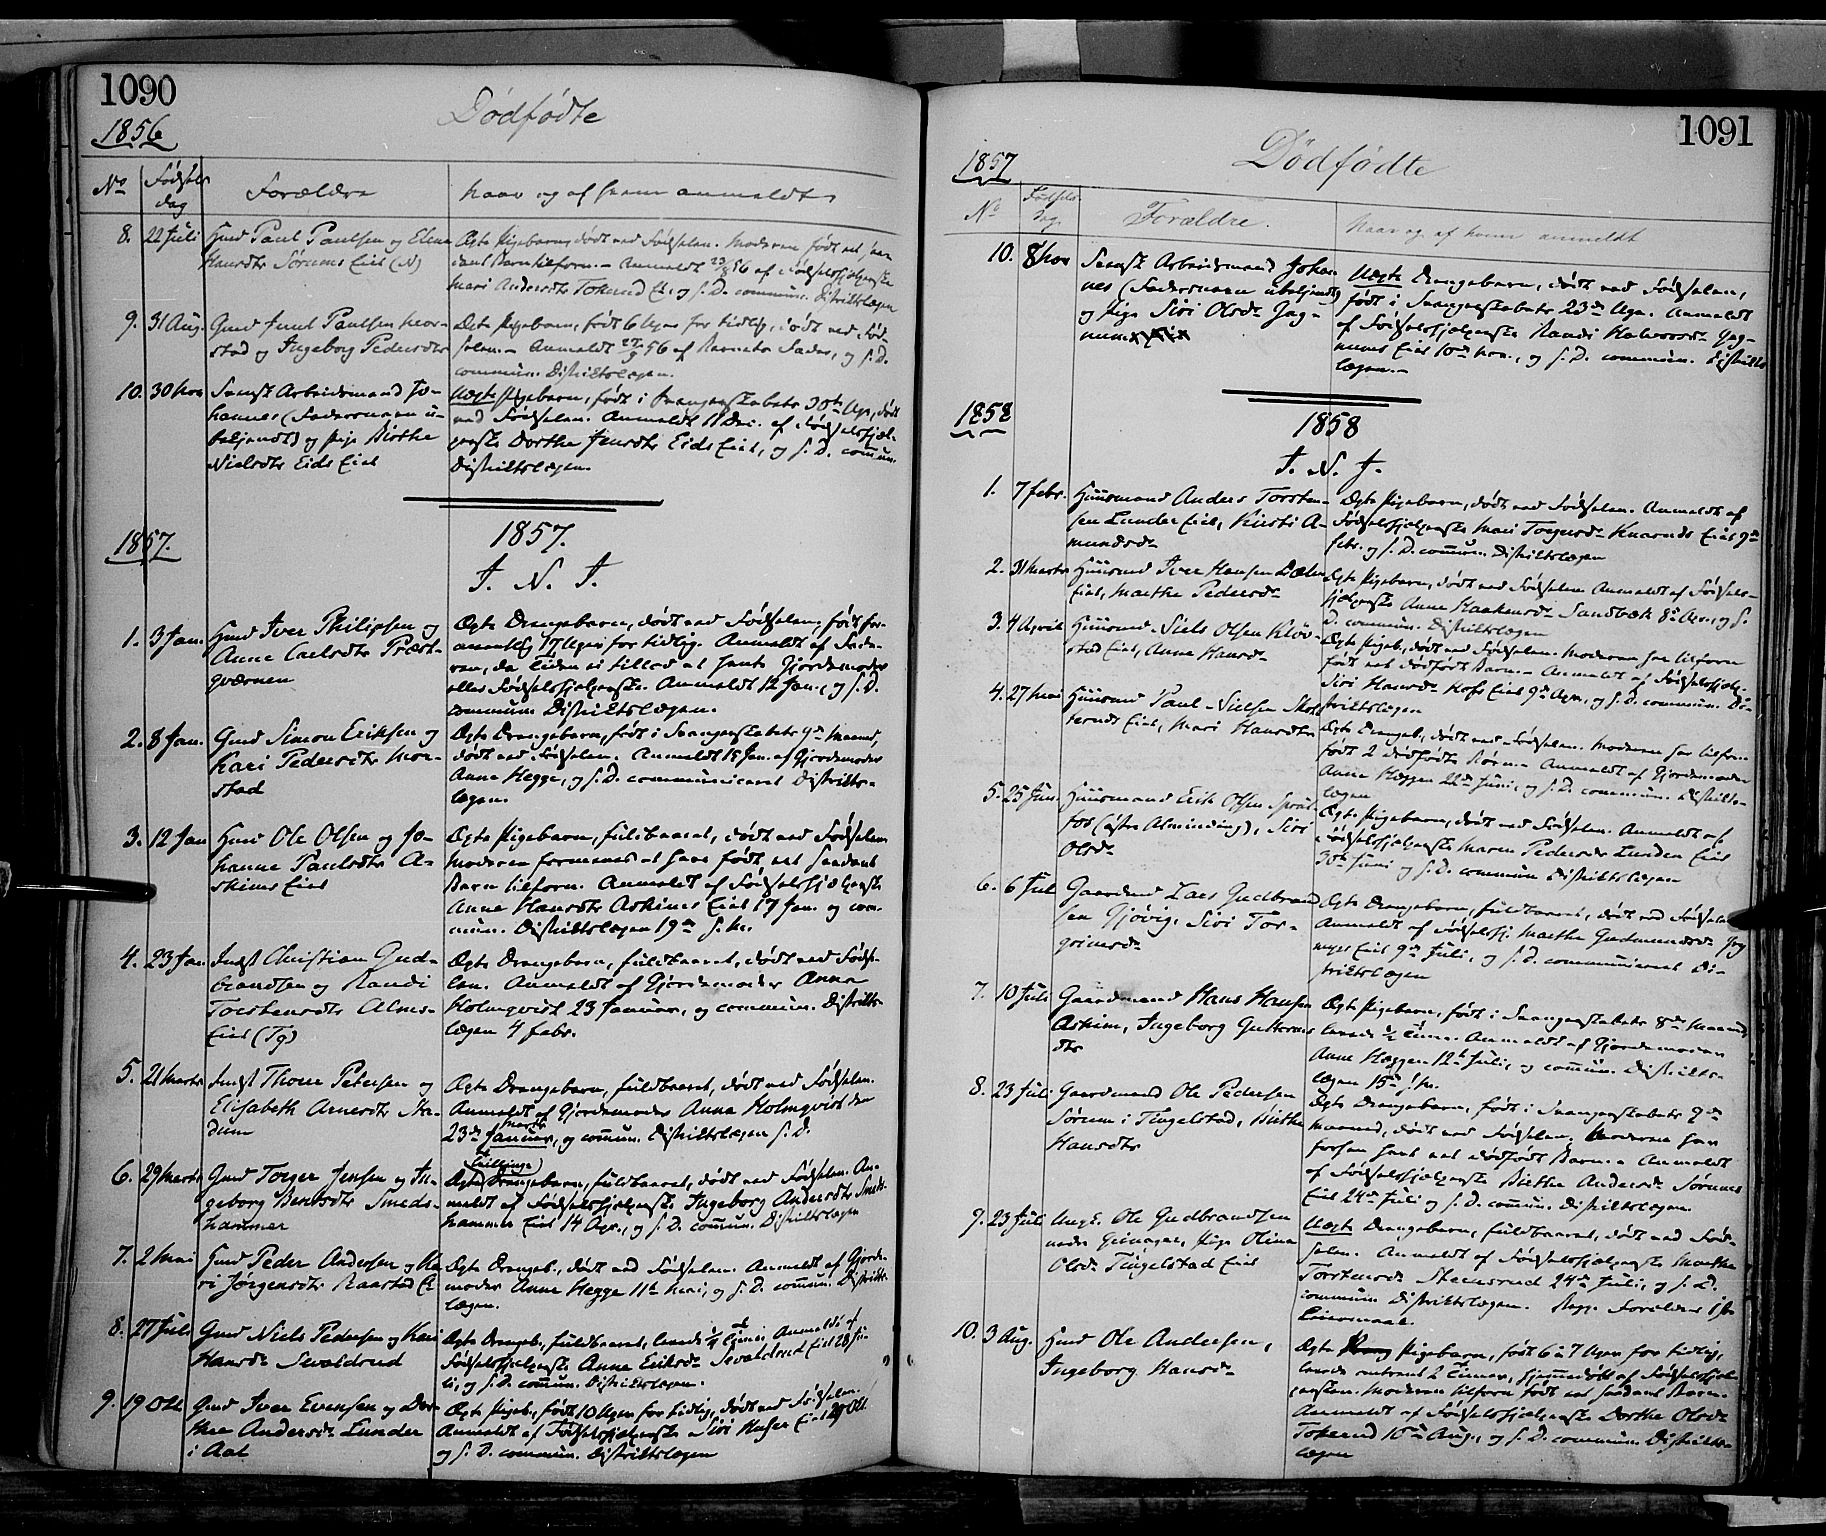 1090
1856
Dødfødte
No
Fødsels
dag
Forældre
naar og af hvem anmeldt
8. 22 Juli Hmd Paul Paulsen og Elena
Hansdtr Sørums Eiet (N)
Ægte Pigebarn, dødt ved Fødselen. Moderen født et saa-
dant Barn tilforn. - Anmeldt 23/8 56 af Fødselshjælperske
Mari Andersdtr Tokerud Eie, og s. D. commun. Distriktslægen
9. 31 Aug. Gmd Juul Paulsen Mor-
stad og Ingeborg Pedersdtr
Ægte Pigebarn, født 6 Uger for tidlig, dødt ved Fød-
selen. - Anmeldt 56 af Barnets Fader, og s. D.
commun. Distriktslægen.
10. 30 Nov Svensk Arbeidsmand Jo-
hannes (Fadersnavn u-
bekjendt) og Pige Birthe
Nielsdtr Eids Eiet
Uægte Pigebarn, født i Svangerskabets 30te Uge, dødt
ved Fødselen. Anmeldt 11 Dec. af Fødselshjæl-
perske Dorthe Jensdtr Eids Eiet, og s. D. commun.
Distriktslægen.
1857.
1857.
J. N. J.
1. 3 Jan. Hmd Iver Philipsen og
Anne Carlsdtr Præst-
qværnen
Ægte Drengebarn, dødt ved Fødselen, født for-
mentlig 17 Uger for tidlig. Anmeldt af Fade-
ren, da Tiden ei tillod at hente Gjordemoder
eller Fødselshjælperske. Anmeldt 12 Jan., og s. D.
commun. Distriktslægen.
2. 8 Jan. Gmd Simon Eriksen og
Kari Pedersdtr Mor-
stad
Ægte Drengebarn, født i Svangerskabets 9de Maaned,
dødt ved Fødselen. Anmeldt 15 Jan. af Gjordemoder
Anne Hegge, og s. D. communiceret Distrikts-
lægen.
3. 12 Jan Hmd Ole Olsen og Jo-
hanne Paulsdtr A-
skims Eiet
Ægte Pigebarn, fuldbaaret, dødt ved Fødselen
Moderen formenes at have født et saadant
Barn tilforn. Anmeldt af Fødselshjælperske
Anne Hansdtr Askims Eiet 17 Jan. og com-
mun. Distriktslægen 19de s. M.
4. 23 Jan. Indst Christian Gud-
brandsen og Randi
Torstensdtr Alms-
Eiet (Tg)
Ægte Drengebarn, fuldbaaret, dødt ved Fødse-
len. Anmeldt af Gjordemoder Anna
Holmqvist 23 Januar, og commun. Distrikts-
lægen 4 Febr.
5. 21 Marts Indst Thore Petersen og
Elisabeth Arnesdtr Ska-
dum
Ægte Drengebarn, fuldbaaret, dødt ved Fødselen.
Anmeldt af Gjordemoder Anna Holmqvist den
Marts
23de Januar, og commun. Distriktslægen s. D.
6. 29 Marts Gmd Torger Jensen og In-
geborg Bentsdtr Smeds-
hammer
(Tvillinge)
Ægte Drengebarn, fuldbaaret, dødt ved Fødselen. An-
meldt af Fødselshjælperske Ingeborg Andersdtr Smeds-
hammer Eiet 14 Apr., og s. D. commun. Distriktslægen
7. 2 Mai Hmd Peder Andersen og Ka-
ri Jørgensdtr Raastad E
Ægte Drengeb., dødt ved Fødselen. Anmeldt af Gjorde-
moder Anne Hegge 11te Mai, og s. D. commun. Distrikts-
lægen.
8. 27 Juli Gmd Niels Pedersen og Kari
Hansdr Sevaldrud
Ægte Drengeb., fuldbaaret, levede 1/4 Time. Anmeldt af
Fødselshjælperske Anne Eriksdr Sevaldrud Eiet 28 Ju-
li, og s. D. commun. Distriktslægen.
9. 19 Okt Gmd Iver Evensen og Dor-
thea Andersdr Lunder
i Aal
Ægte Pigeb., født 10 Uger for tidlig, dødt ved Fødselen.
Anmeldt af Fødselshjælperske Siri Eiet 29 Okt
og s. D. commun. Distriktslægen
1091
1857
Dødfødte
No
Fødsels
Dag
Forældre.
Naar og af hvem anmeldt
10. 8 Nov Svensk Arbeidsmand Johan-
nes (Fadersnavn ubekjendt)
og Pige Siri Olsdr Jag-
Uægte Drengebarn, dødt ved Fødselen,
født i Svangerskabets 23de Uge. Anmeldt
af Fødselshjælperske Randi Halvorsdr Jag-
Eiet 10de Nov., og s. D. commun. Distrikts-
lægen. -
1858
1858
J. N. J.
1. 7 Febr. Huusmand Anders Torsten-
sen Lunder Eiet, Kirsti A-
mundsdr
Ægte Pigebarn, dødt ved Fødselen. Anmeldt af
Fødselshjælperske Mari Torgersdr Eiet 9de
Febr. og s. D. commun. Distriktslægen
2. 31 Marts Huusmd Iver Hansen Dælen
Eiet, Marthe Pedersdr
Ægte Pigebarn, dødt ved Fødselen Anmeldt af Fødsels-
hjælperske Anne Haakensdr Sandbæk 8de Apr., og s.
D. commun. Distriktslægen
3. 4 April Huusmd Niels Olsen Klöv-
stad Eiet, Anne Hansdr
Ægte Pigeb., dødt ved Fødselen. Moderen har tilforn
født et dødfødt Barn. - Anmeldt af Fødselshjælp.
Siri Hansdr Hofs Eiet 9de Apr., og s. D. commun. Di-
striktslægen
4. 27 Mai Huusmd Paul Nielsen Skot-
terud Eiet, Mari Hansdtr
Ægte Drengeb., dødt ved Fødselen. Moderen har tilforn
født 2 dødfødte Børn. - Anmeldt af Gjordemoder
Anne Heggen 22de Juni, og s. D. commun. Distrikts-
lægen
5. 25 Jun. Huusmand Erik Olsen
(østre Alminding), Siri
Olsdr
Ægte Pigebarn, dødt ved Fødselen. Anmeldt af
Fødselshjælperske Maren Pedersdr Lunden Eiet
30te Juni og s. D. commun Distriktslægen
6. 6 Jul. Gaardmd Lars Gudbrand-
sen Gjøvig, Siri Tor-
grimsdr
Ægte Drengebarn, fuldbaaret, dødt ved Fødselen
Anmeldt af Fødselshj. Marthe Gudmundsdr
Eiet 9de Juli, og s. D. communiceret Di-
striktslægen
7. 10 Juli Gaardmand Hans Hansen
Askim, Ingeborg Guttorms-
dtr
Ægte Pigebarn, født i Svangerskabets 8de Maaned,
levede 1/2 Time. Anmeldt af Gjordemoder
Anne Heggen 12te Juli, og commun. Distrikts-
lægen 15de s. M.
8. 23 Juli. Gaardmand Ole Pedersen
Sørum i Tingelstad, Birthe
Hansdtr
Ægte Drengebarn, født i Svangerskabets 9de
Maaned, dødt ved Fødselen. Moderen har
forhen havt et dødfødt Barn. - Anmeldt
af Fødselshjælperske Birthe Andersdr Sørums
Eiet 24de Juli og s. D. commun. Distriktslægen.
9. 23 Juli Ungk. Ole Gudbrandsen
nedre Grinager, Pige Olina
Olsdr Tingelstad Eiet
Uægte Drengebarn, fuldbaaret, dødt ved Fød-
selen. Anmeldt af Fødselshjælperske Marthe
Torstensdr Stensrud 24de Juli, og s. D.
commun Distriktslægen. Begge Forældres 1ste
Leiermaal.
10. 3 Aug. Hmd Ole Andersen,
Ingeborg Hansdr
Ægte Pigebarn, født 6 à 7 Uger for tidlig,
levede omtrent 2 Timer, hjemmedøbt af Fødselshjæl-
persken. Moderen tilforn født et saadant Barn.
Anmeldt af Fødselshjælperske Dorthe Olsdr
Tokerud 10de Aug., og s. D. commun. Distrikts-
lægen